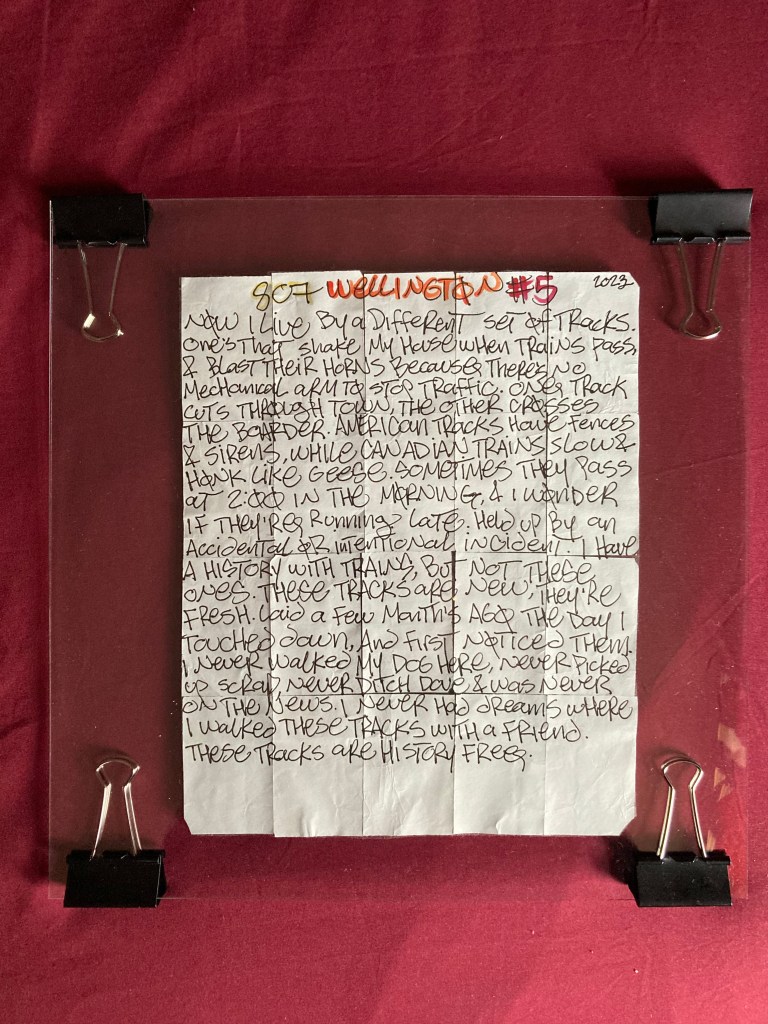 807 WELLINGTON #5 2023
NOW I LIVE BY A DIFFERENT SET OF TRACKS.
ONE'S THAT SHAKE MY HOUSE WHEN TRAINS PASS,
& BLAST THEIR HORNS BECAUSE THERE'S NO
MECHANICAL ARM TO STOP TRAFFIC. ONE TRACK
CUTS THROUGH TOWN, THE OTHER CROSSES
THE BOARDER. AMERICAN TRACKS HAVE FENCES
& SIRENS, WHILE CANADIAN TRAINS SLOW &
HONK LIKE GEESE. SOMETIMES THEY PASS
AT 2:00 IN THE MORNING, & I WONDER
IF THEY'RE RUNNING LATE. HELD UP BY AN
ACCIDENTAL OR INTENTIONAL INCIDENT. I HAVE
A HISTORY WITH TRAINS, BUT NOT THESE
ONES. THESE TRACKS ARE NEW, THEY'RE
FRESH. LAID A FEW MONTH'S AGO THE DAY I
TOUCHED DOWN, AND FIRST NOTICED THEM.
I NEVER WALKED MY DOG HERE, NEVER PICKED
UP SCRAP, NEVER DITCH DOVE & WAS NEVER
ON THE NEWS. I NEVER HAD DREAMS WHERE
I WALKED THESE TRACKS WITH A FRIEND.
THESE TRACKS ARE HISTORY FREE.